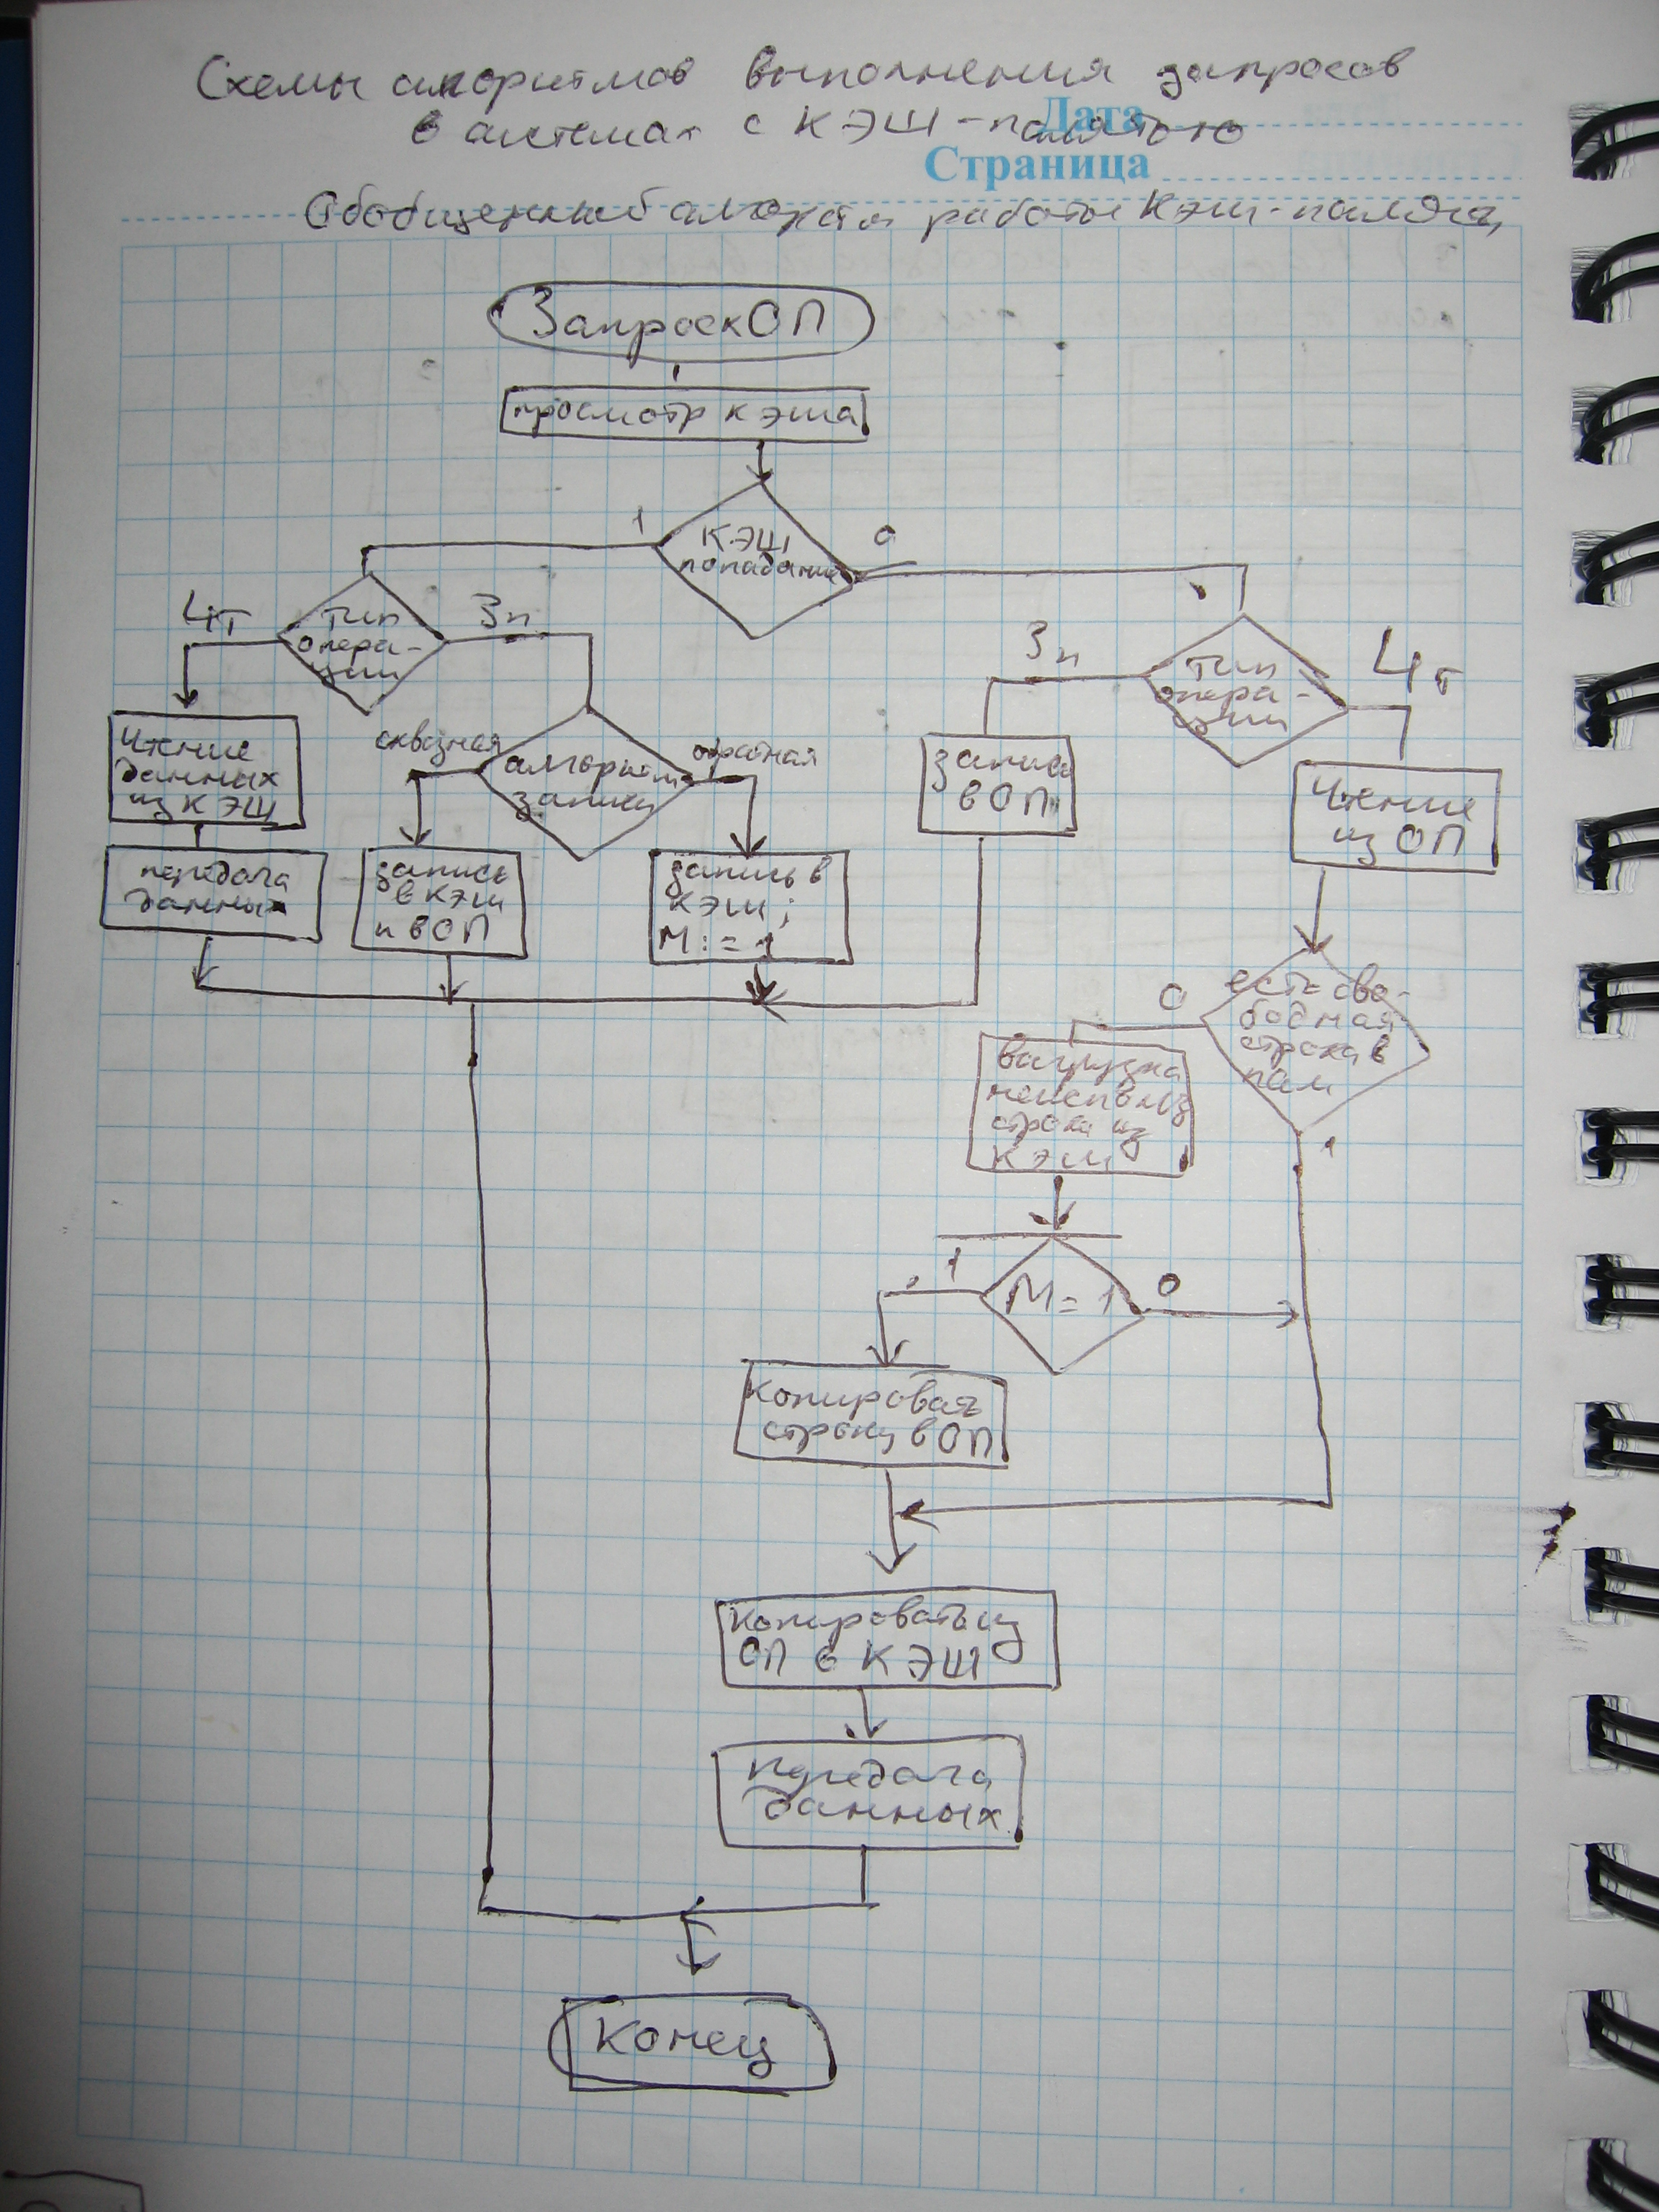 Схемы алгоритмов выполнения запросов
в системах с КЭШ-памятью
Дата
Страница
Обобщенный алгоритм работы Кэш-памяти
Запрос к ОП
просмотр кэша
КЭШ
попадание
1
0
тип
опера-
ции
Чт
Зп
тип
опера-
ции
Зп
Чт
Чтение
данных
из КЭШ
сквозная
алгоритм
записи
обратная
запись
в ОП
Чтение
из ОП
передача
данных
запись
в КЭШ
и в ОП
запись в
КЭШ;
М:=1
есть сво-
бодная
строка в
пам
0
1
выгрузка
неиспольз
строки из
КЭШ
М=1
1
0
Копировая
строку в ОП
Копировать из
ОП в КЭШ
передача
данных
Конец